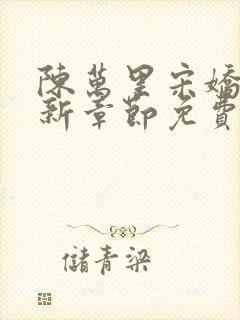 陳萬里宋嬌
新章節免費
儲青梁